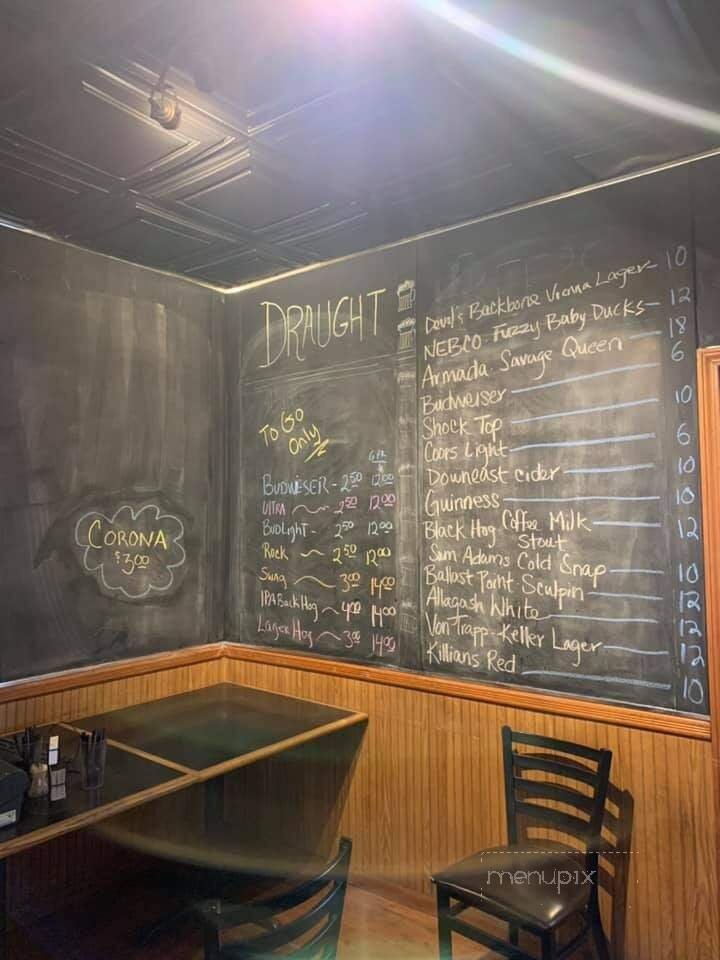 CORONA
$3.00
DRAUGHT
To Go
Only
6PK
BUDWEISER - 2.50 12.00
ULTRA 2.50 12.00
BUDLIGHT - 2.50 12.00
Rock 2.50 12.00
Swing 3.00 14.00
IPA Back Hog 4.00 14.00
Lager Hog 3.00 14.00
Devil's Backbone Vienna Lager 10
NEBCO Fuzzy Baby Ducks 12
Armada Savage Queen 18
Budweiser 6
Shock Top 10
Coors Light 6
Downeast cider 10
Guinness 10
Black Hog Coffee Milk 12
Stout
Sam Adams Cold Snap 10
Ballast Point Sculpin 12
Allagash White 12
Von Trapp - Keller Lager 12
Killians Red 10
menupix